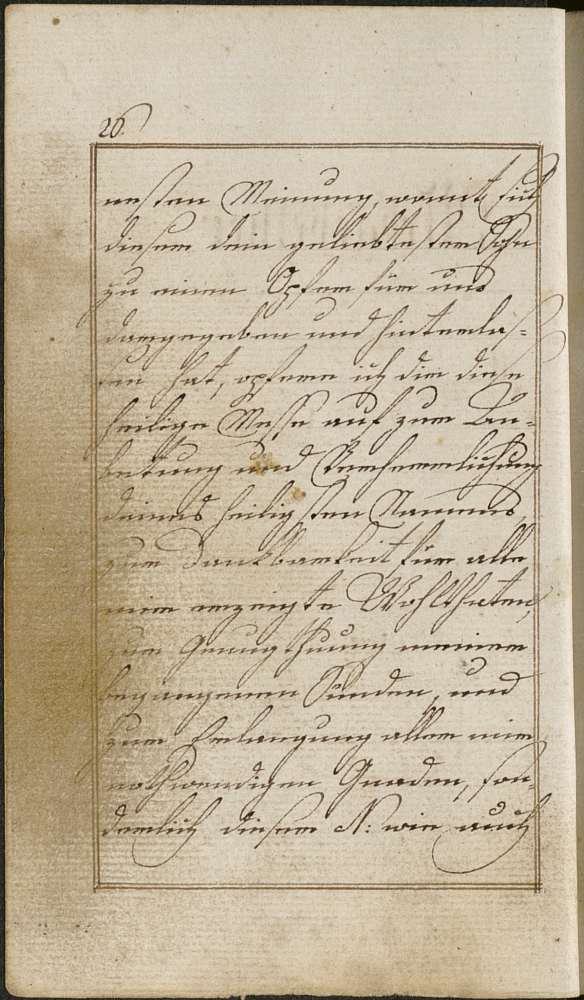 26.
nesten Meinung, womit sich
dieser dein geliebtester Sohn
zu einen Opfer für uns
dargegeben und hinterlas-
sen hat, opfere ich dir diese
heilige Messe auf zur An-
bettung und Verherrlichung
deines heiligsten Namens,
zur Dankbarkeit für alle
mir erzeigte Wohlthaten,
zur Genugthuung meiner
begangenen Sünden, und
zur Erlangung aller mir
nothwendigen Gnaden, son-
derlich dieser N: wie auch